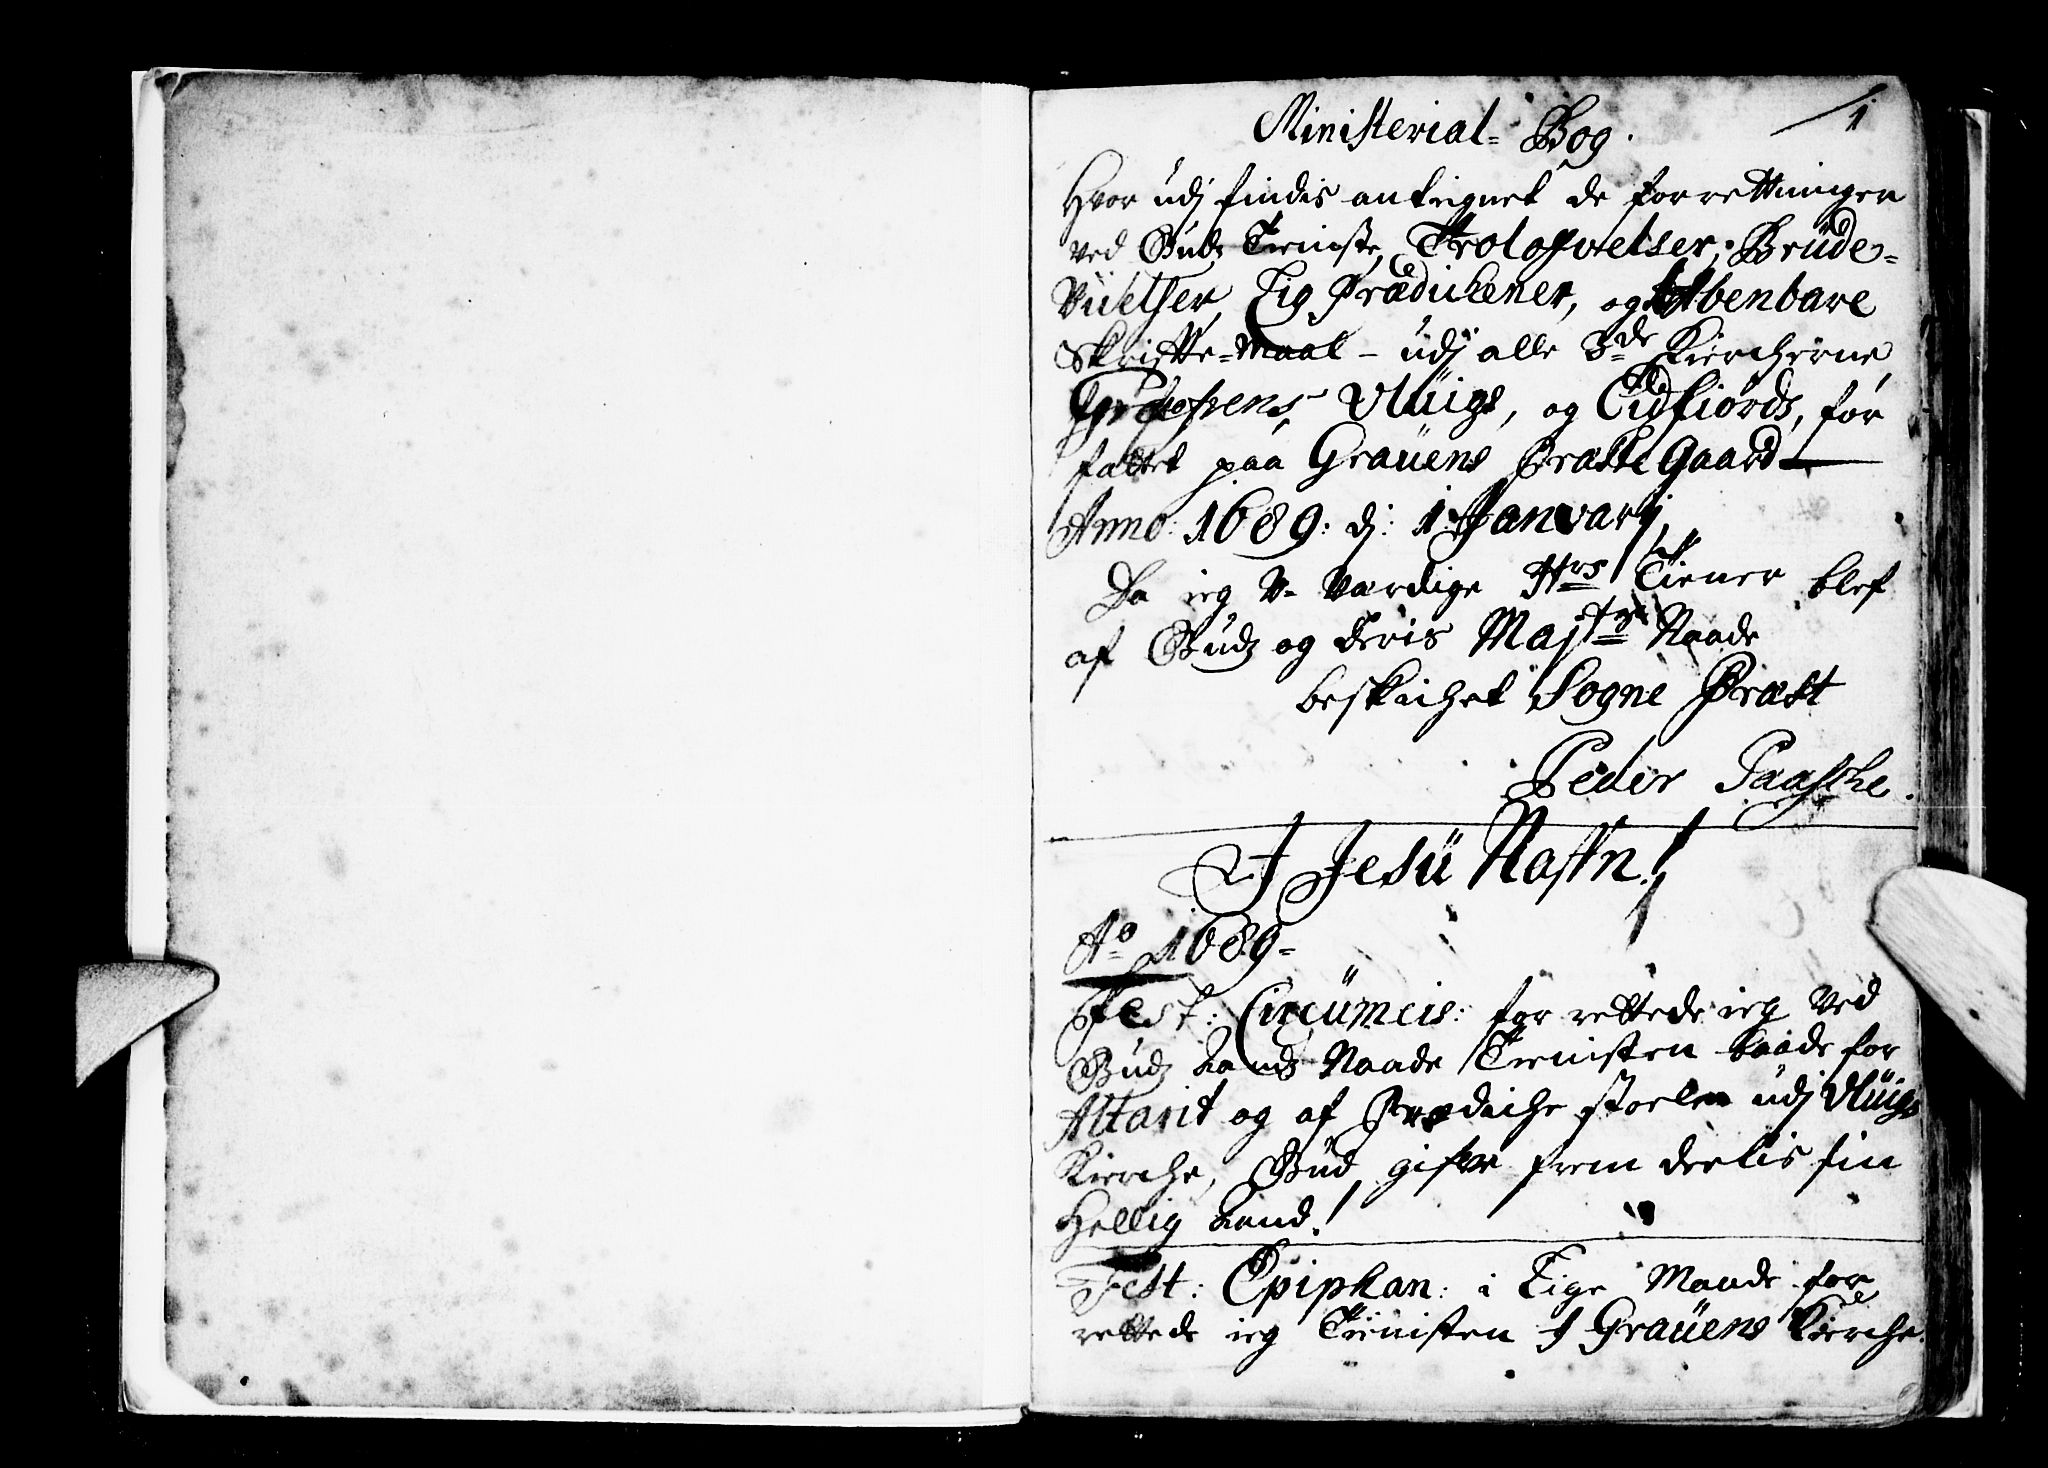 1
Ministerial= Bog.
Hvor udj findis anteignet de forrettninger
ved Gudz Tieniste, Trolofvelser, Brüde=
Vielser, Lig Prædichener, og Abenbare
Skrifte=Maal - udj alle 3de Kircherne
Grafvens, Ulüigs, og Eidfiords, for
fattet paa Graüens Præste Gaard
Anno: 1689: dj: 1 Januarij
Da ieg U-værdige Hrs Tiener blef
af Gudz og Kongis Majtz Naade
beskichet Sogne Præst
Peder Paasche.
J Jesü Nafn!
Ao 1689=
Fest: Circümcis: for rettede ieg ved
Gudz Aands Naade Tienisten baade for
Altarit og af Prædiche stoelen udj Ulüigs
Kirche, Gud gifve frem deelis sin
Hellig Aand!
Fest: Epiphan: i Lige Maade for
rettede ieg Tienisten J Graüens Kirche